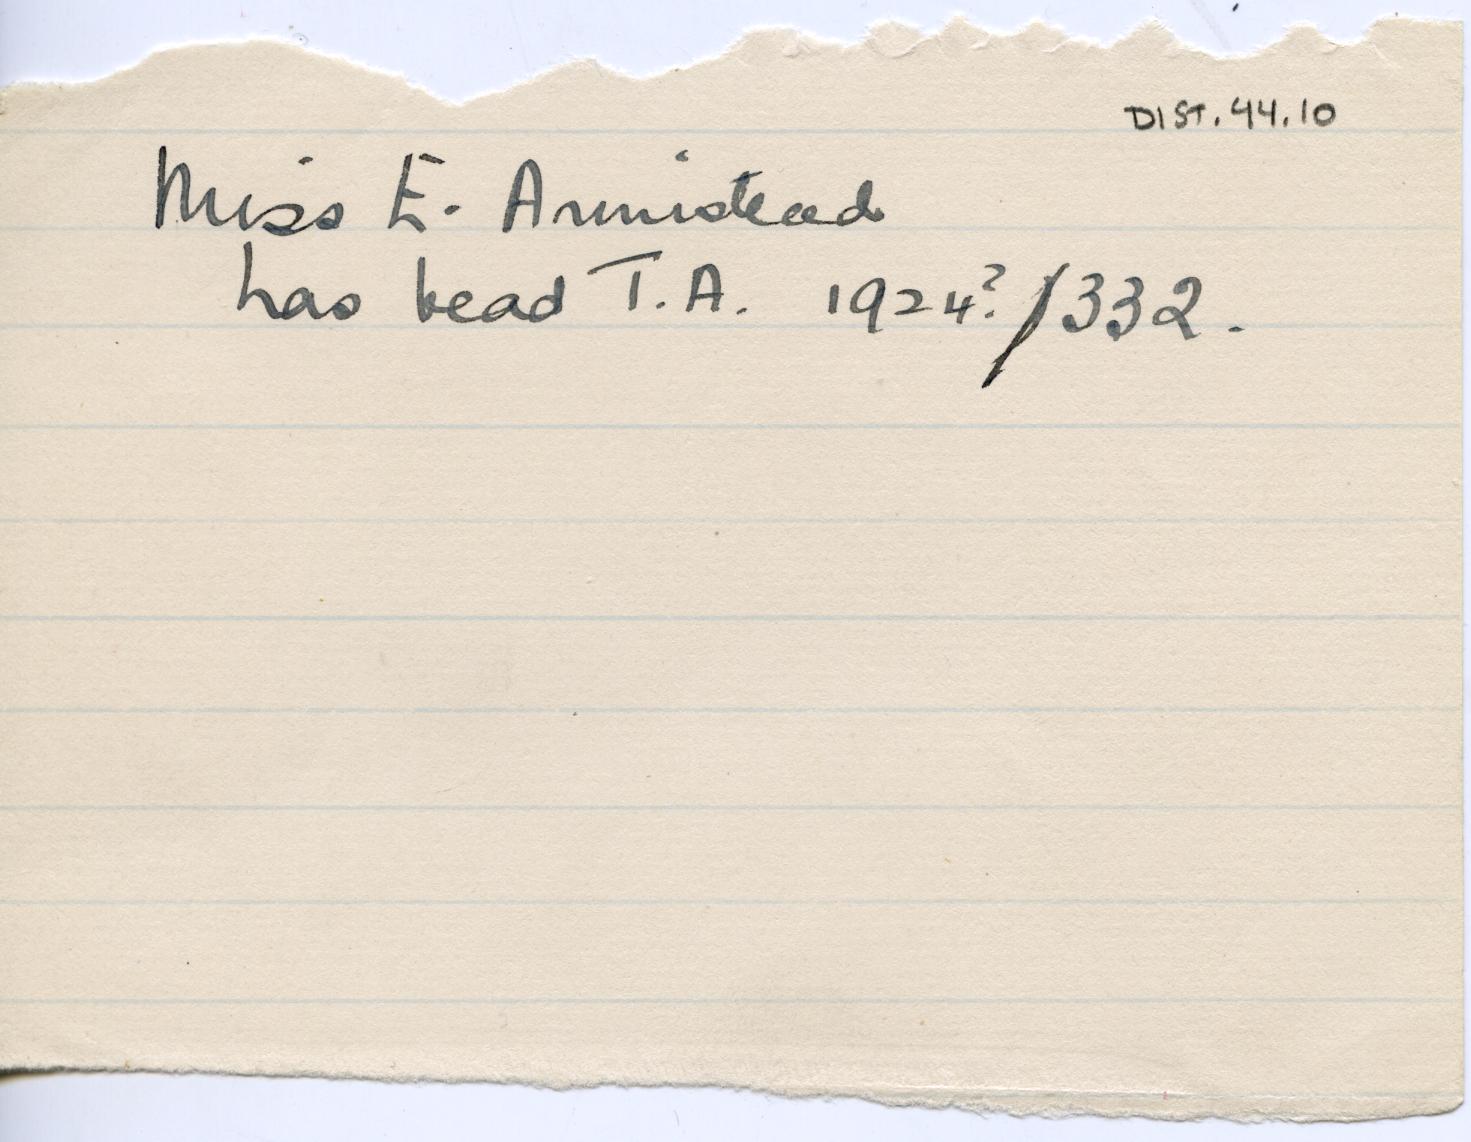 DIST.44.10
Miss E. Armistead
has bead T.A. 1924?/332.